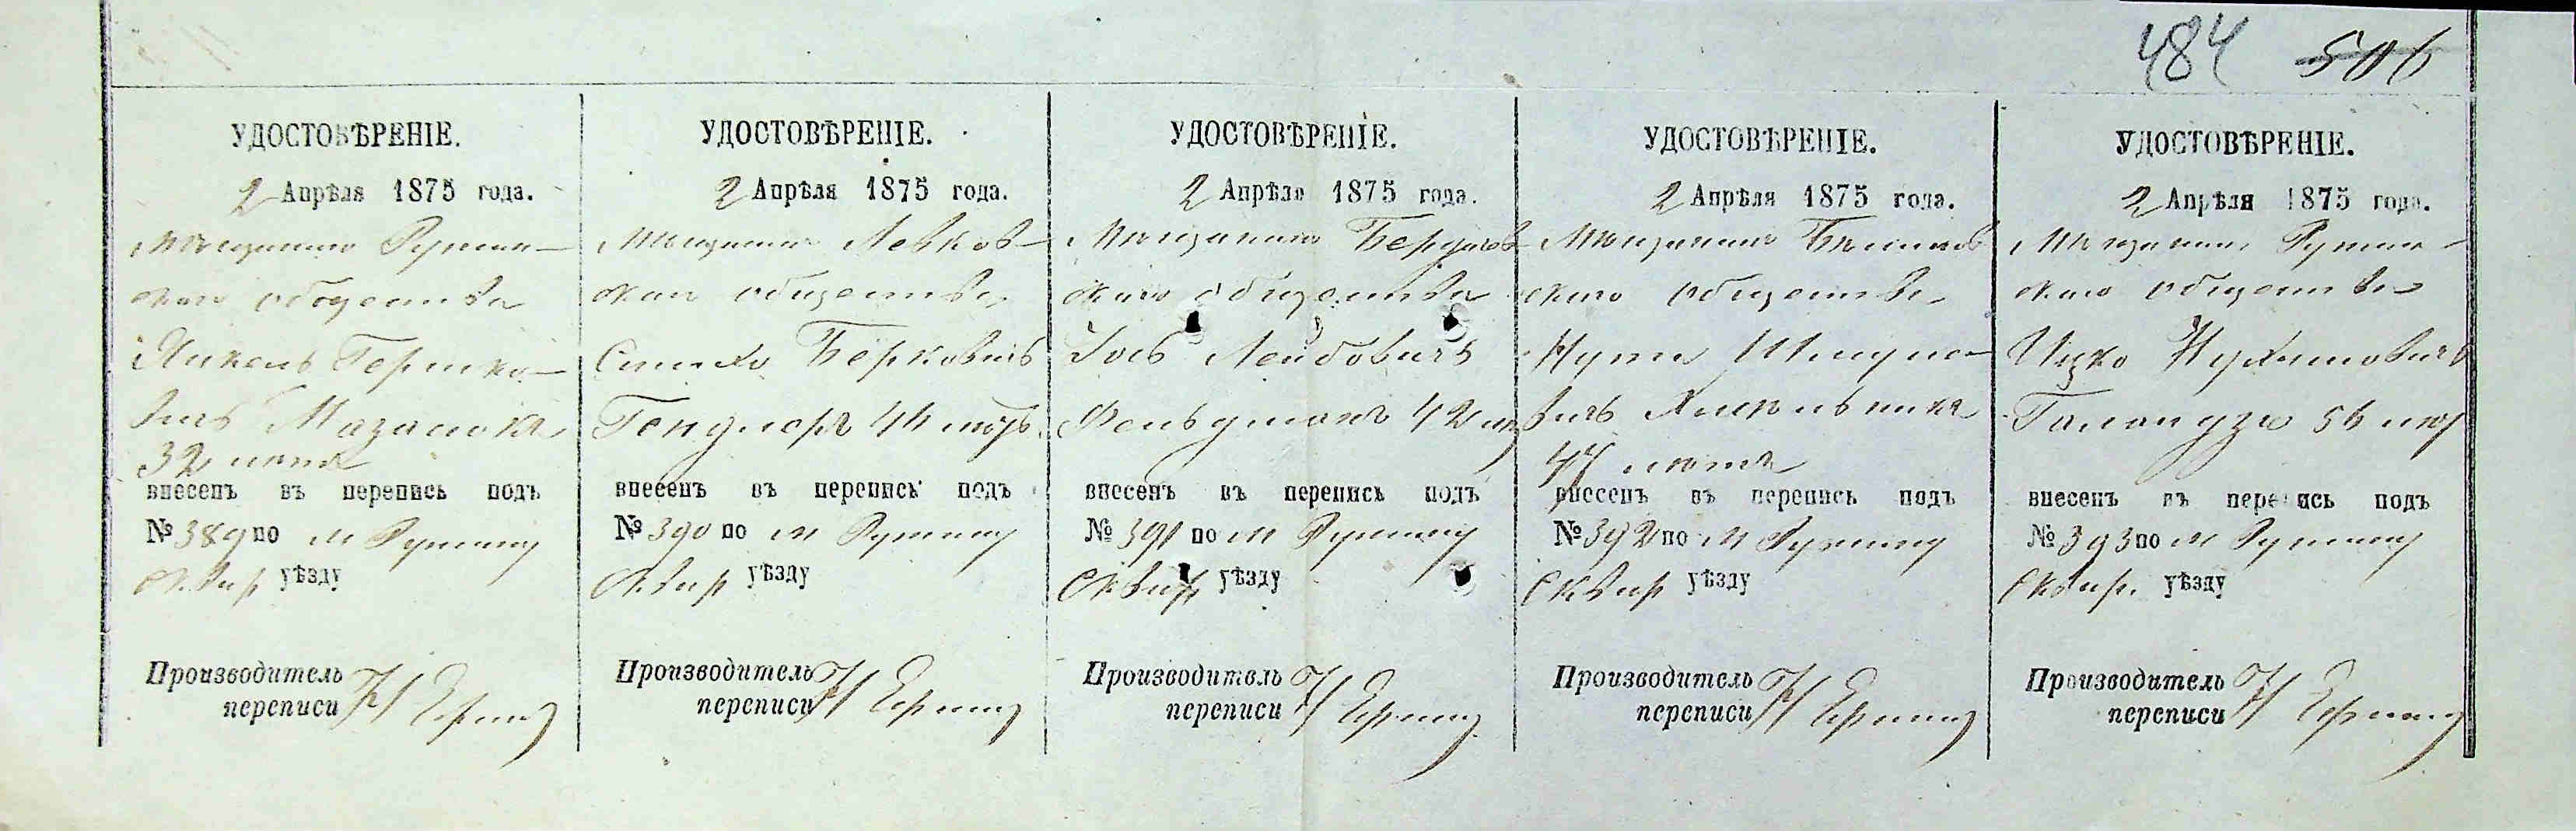 484 506
УДОСТОВѢРЕНІЕ.
2 Апрѣля 1875 года.
Мѣщанинъ Ружин-
скаго общества
Янкель Гершко-
вичъ
32 лѣтъ
внесенъ въ перепись подъ
№ 389 по м Ружину
Сквир уѣзду
Производитель
переписи
УДОСТОВѢРЕНІЕ.
2 Апрѣля 1875 года.
Мѣщанинъ Левков-
скаго общества
Симха Берковичъ
Гендлеръ 44 лѣтъ
внесенъ въ перепись подъ
№ 390 по м Ружину
Сквир уѣзду
Производитель
переписи
УДОСТОВѢРЕНІЕ.
2 Апрѣля 1875 года.
Мѣщанинъ Бердичев-
скаго общества
Іось Лейбовичъ
Фельдманъ 42
внесенъ въ перепись подъ
№ 391 по м Ружину
Сквир уѣзду
Производитель
переписи
УДОСТОВѢРЕНІЕ.
2 Апрѣля 1875 года.
Мѣщанинъ
скаго общества
Нута Шмуле-
вичъ Хмельникъ
47 лѣтъ
внесенъ въ перепись подъ
№ 392 по м Ружину
Сквир уѣзду
Производитель
переписи
УДОСТОВѢРЕНІЕ.
2 Апрѣля 1875 года.
Мѣщанинъ Ружин-
скаго общества
Ицко Нухимовичъ
54
внесенъ въ перепись подъ
№ 393 по м Ружину
Сквир. уѣзду
Производитель
переписи